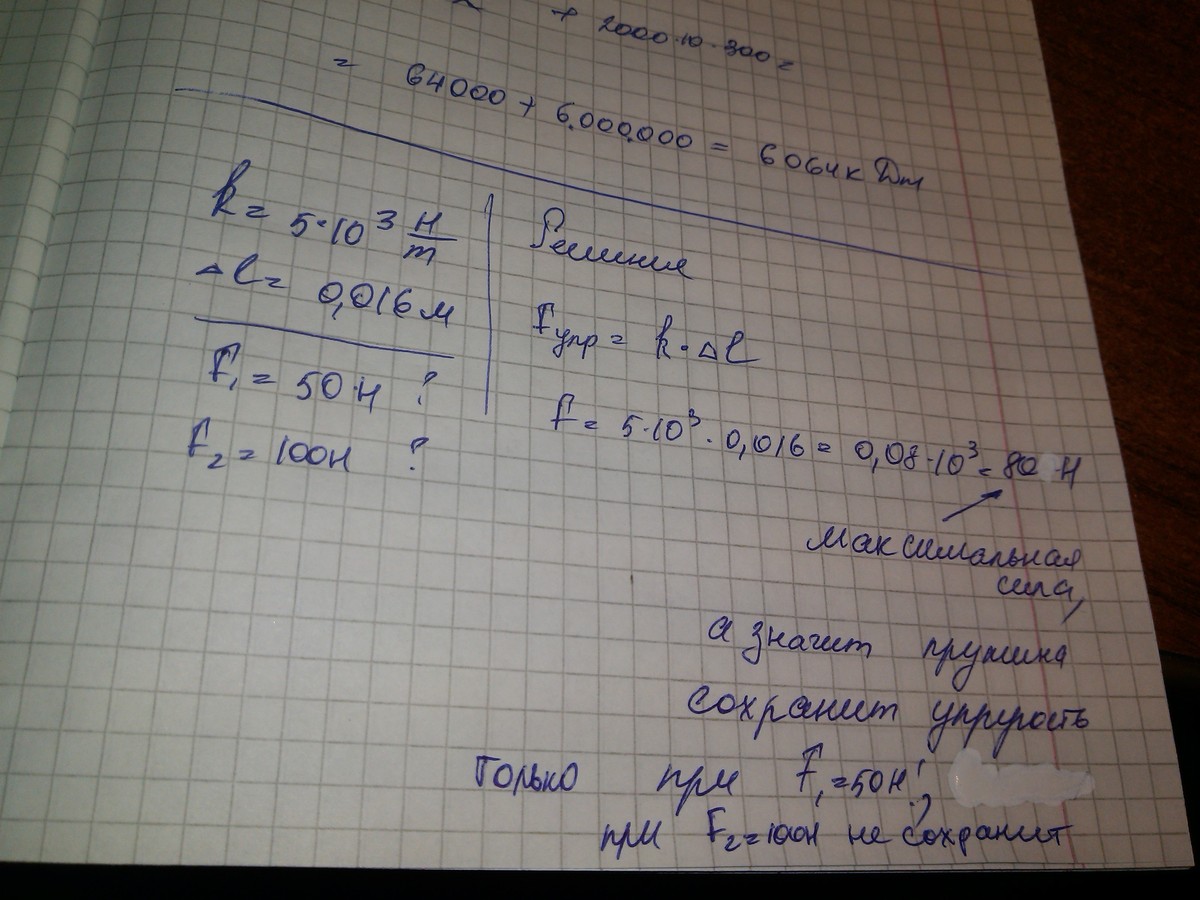 + 2000·10·300 =
= 64000 + 6.000.000 = 6064к Дж
k = 5·10³ Н/m
Δl = 0,016м
F₁ = 50 Н ?
F₂ = 100Н ?
Решения
Fупр = k·Δl
F = 5·10³·0,016 = 0,08·10³ = 80 Н
максимальная
сила,
а значит пружина
сохранит упругость
только при F₁ = 50Н;
при F₂ = 100Н не сохранит